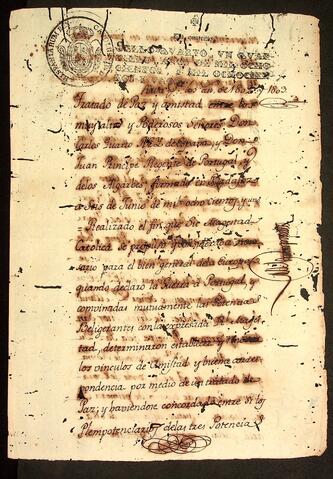 SELLO QUARTO, VN QUAR
TILLO, AÑOS DE MIL OCHO
CIENTOS Y MIL OCHOCIEN
1803
Tratado de Paz y amistad entre los
muy altos y Poderosos Señores Don
Carlos Quarto Rey de España, y Don
Juan Principe Regente de Portugal, y
delos Algarbes firmado en Badajoz
a seis de Junio de mil ochocientos y uno
Realizado el fin que Su Magestad
Catolica se propuso y
sario para el bien general dela Europa
quando declaro la Guerra a Portugal, y
convinadas mutuamente las Potencias
Beligerantes con la expresada Mages
tad, determinaron establecer y renovar
los vinculos de Amistad y buena corres
pondencia por medio de un tratado de
Paz; y haviendose concordado entre si los
Plempotenciarios delas tres Potencias